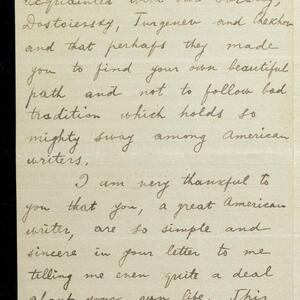 acquainted with our Tolstoy,
Dostoievsky, Turgenev and Chekhov
and that perhaps they made
you to find your own beautiful
path and not to follow bad
tradition which holds so
mighty sway among American
writers.
I am very thankful to
you that you, a great American
writer, are so simple and
sincere in your letter to me
telling me even quite a deal
about your own life. This